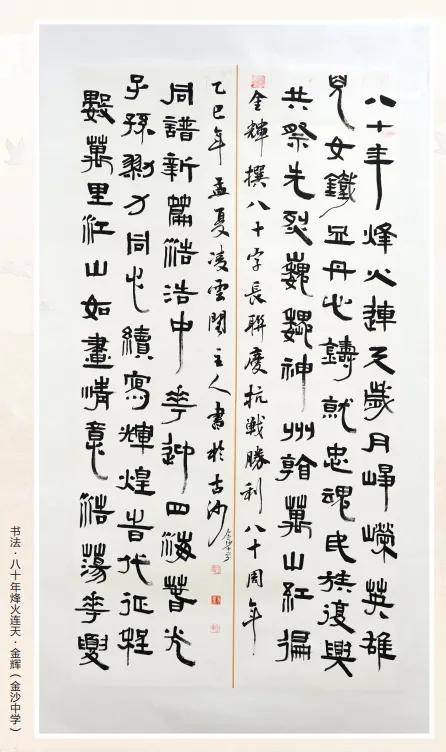 八十年烽火連天歲月崢嶸英雄
兒女鐵血丹心鑄就忠魂民族復興
共祭先烈巍巍神州翰萬山紅遍
金輝撰八十字長聯慶抗戰勝利八十周年
數萬里江山如畫情意浩蕩華夏
子孫勠力同心續寫輝煌旹代征程
同譜新篇浩浩中華迎四海春光
乙巳年孟夏凌雲閣主人書於古沙
书法·八十年烽火连天·金辉（金沙中学）